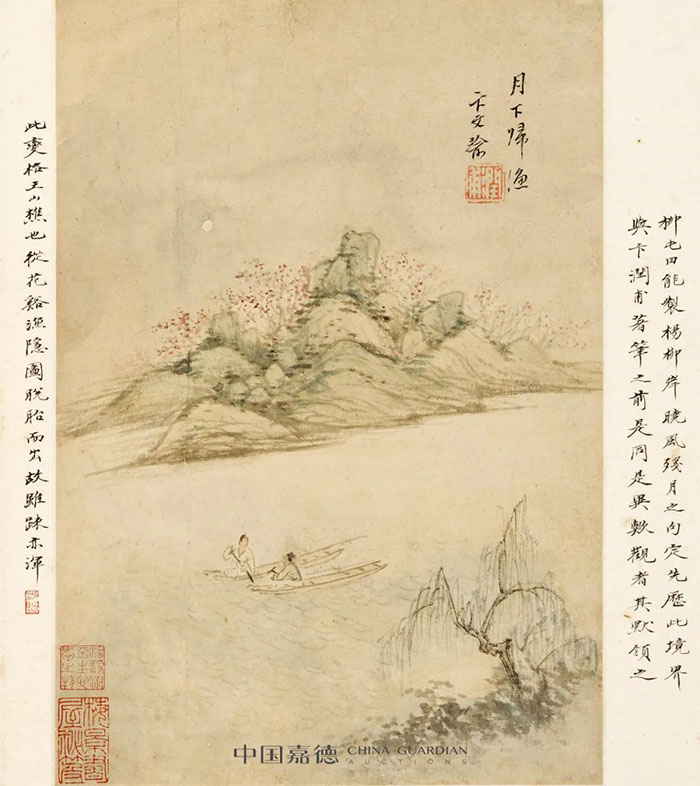 柳屯田能製楊柳岸曉風殘月之句定先歷此境界
與卞潤甫著筆之前是同是異歟觀者其默領之
月下歸漁
卞文瑜
此變格王山樵也從花谿漁隱圖脫胎而出故雖疎亦渾
梅景書屋秘笈
中国嘉德 CHINA GUARDIAN
AUCTIONS